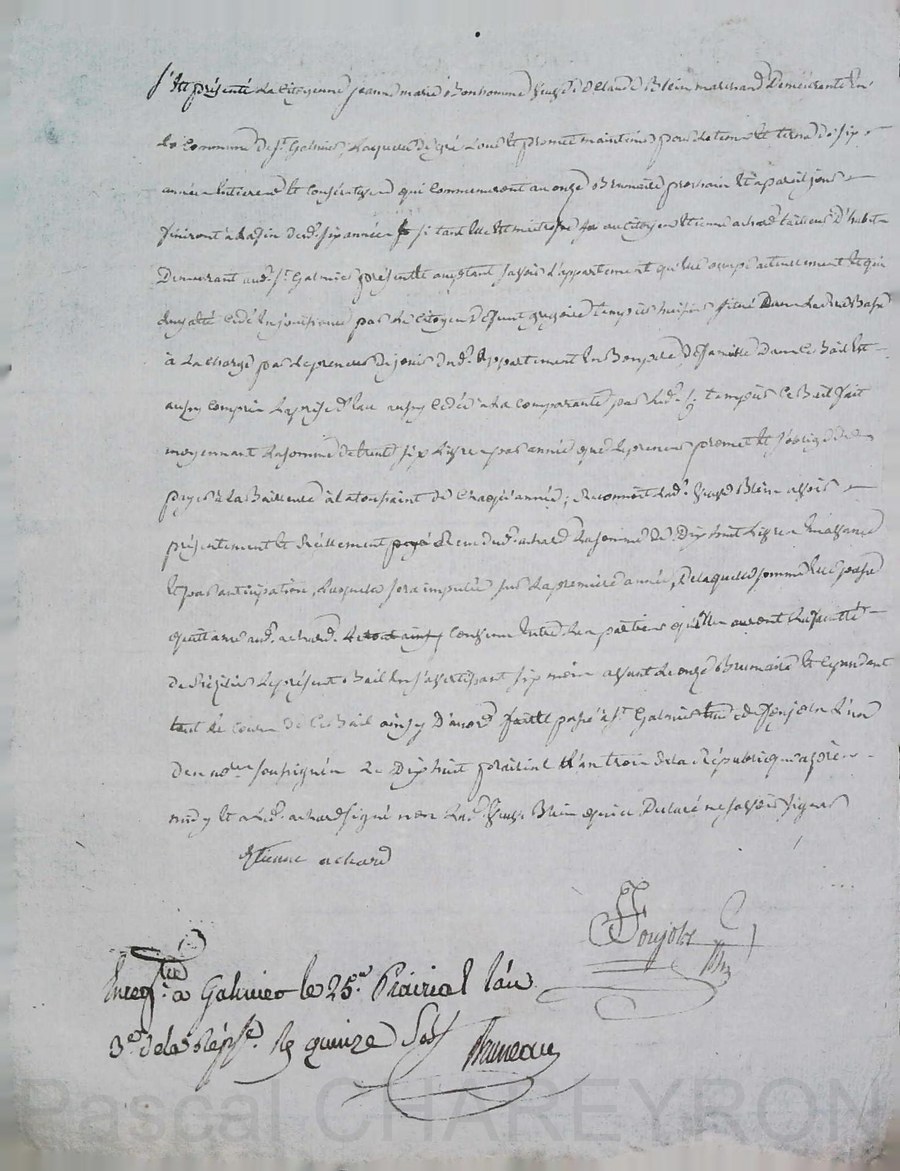 S'est présenté La Citoyenne jeanne marie Bonhomme veuve de Claude Blein marchand Demeurante En
La Commune de St. Galmier, Laquelle de gré Loue et promet maintenir pour le tems et terme de six
années entieres et Consécutives qui Commenceront au onze Brumaire prochain Et a pareil jour
finiront à la fin desd. six années au Citoyen Etienne achard tailleur D'habits
Demeurant aud. St. Galmier présent et acceptant savoir L'appartement qu'elle occupe actuellement et qui
Luy a été cédé En jouissance par Le Citoyen situé Dans La Rue Basse
à La charge par Le preneur de jouir dud. appartement En Bon père De famille Dans Ce Bail Est
aussy compris La prise d'eau aussy Cédée à La comparante par Led. Ce Bail fait
moyennant La somme de trente six Livres par année que Le preneur promet Et s'oblige de
payer à La Bailleuse à la toussaint de Chaque année; Reconnoit Lad. veuve Blein avoir
présentement Et Réellement Reçu dud. achard La somme de Dix huit Livres En avance
Et par anticipation, Laquelle sera imputée sur La première année, De laquelle somme Elle passe
quittance aud. achard. Convenu Entre Les parties qu'elles auront La faculté
de Résilier Le présent Bail En s'avertissant six mois avant Le onze Brumaire Et Cependant
tout le cours de Ce Bail ainsy D'accord fait Et passé à St. Galmier Etude de fonjols L'un
Des nores. soussignés Le Dix huit prairial L'an trois de La République après
midy Et a Led. achard signé non Lad. veuve Blein qui a Déclaré ne savoir signer
Etienne achard
Fonjols
Enregtré. a Galmier le 25e. Prairial l'an
3e. de la Répe. R quinze Sols
Bruneau
Pascal CHAREYRON